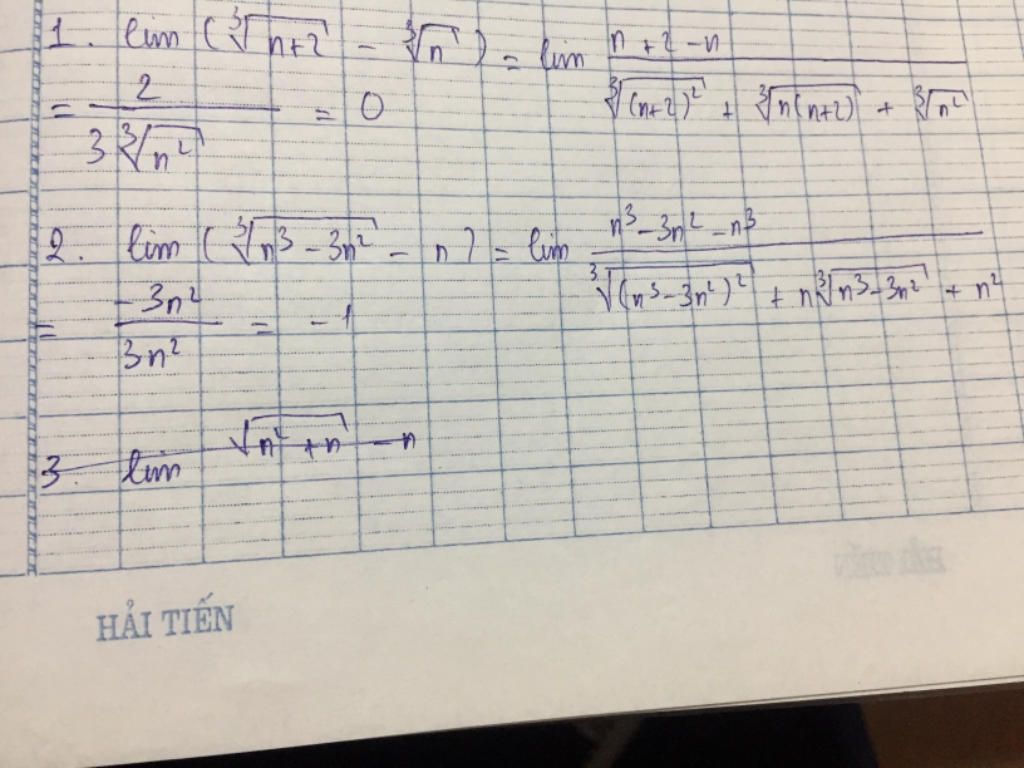 1. lim (∛(n+2) - ∛n) = lim (n+2-n)/(∛((n+2)²) + ∛(n(n+2)) + ∛(n²))
= 2/(3∛(n²)) = 0
2. lim (∛(n³-3n²) - n) = lim (n³-3n²-n³)/(∛((n³-3n²)²) + n∛(n³-3n²) + n²)
= (-3n²)/(3n²) = -1
3. lim √(n²+n) - n
HẢI TIẾN